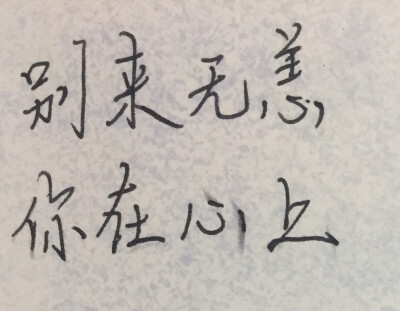 别来无恙,
你在心上